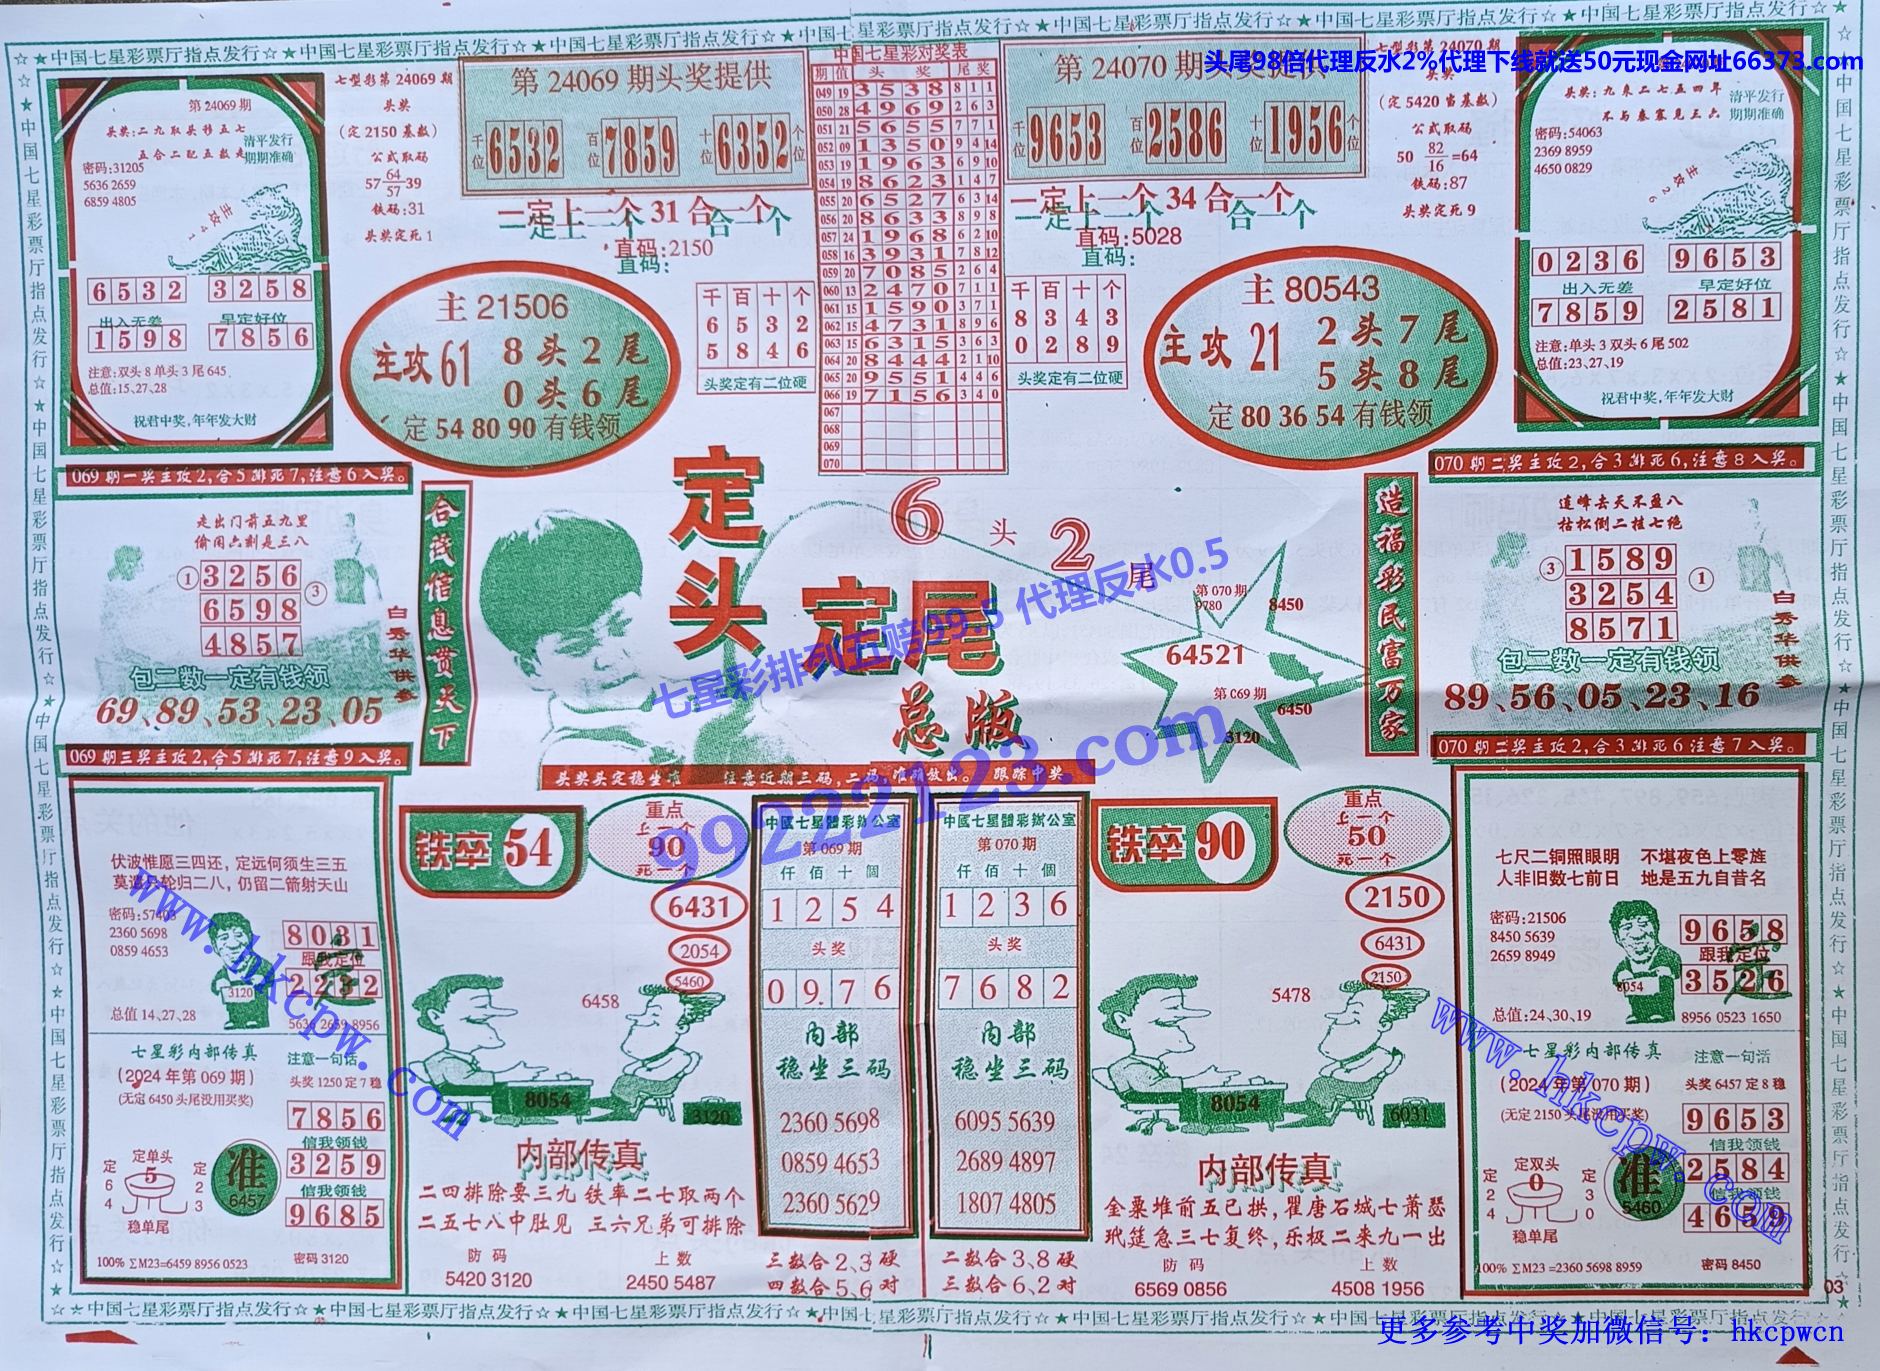 ☆★中国七星彩票厅指点发行☆★中国七星彩票厅指点发行☆★中国七星彩票厅指点发行☆★中国七星彩票厅指点发行☆★中国七星彩票厅指点发行☆★中国七星彩票厅指点发行☆★
头尾98倍代理反水2%代理下线就送50元现金网址66373.com
第24069期
头奖:二九取头移五七
清平发行
五合二配五数走
期期准确
密码:31205
5636 2659
6859 4805
主攻41
6532 3258
出入无差 早定好位
1598 7856
注意:双头8单头3尾645、
总值:15、27、28
祝君中奖,年年发大财
七型彩第24069期
头奖
(定2150基数)
公式取码
57 64/57 39
铁码:31
头奖定死1
第24069期头奖提供
千位 6532 百位 7859 十位 6352 个位
一定上一个31合一个
直码:2150
直码:
主21506
主攻61
8头2尾
0头6尾
定54 80 90有钱领
千百十个
6532
5846
头奖定有二位硬
中国七星彩对奖表
期 值 头奖 尾奖
049 19 3538 8 1 1
050 28 4969 2 6 3
051 21 5655 7 7 1
052 09 1350 9 4 14
053 19 1963 6 9 10
054 19 8623 1 4 7
055 20 6527 6 3 14
056 20 8633 8 9 8
057 24 1968 6 2 10
058 16 3931 7 8 12
059 20 7085 2 6 4
060 13 2470 7 1 1
061 15 1590 3 7 1
062 15 4731 8 9 6
063 15 6315 3 6 3
064 20 8444 2 1 10
065 20 9551 4 4 6
066 19 7156 3 4 0
067
068
069
070
第24070期头奖提供
千位 9653 百位 2586 十位 1956 个位
一定上一个34合一个
直码:5028
直码:
千百十个
8343
0289
头奖定有二位硬
主80543
主攻21
2头7尾
5头8尾
定80 36 54有钱领
七型彩第24070期
头奖
(定5420当基数)
公式取码
50 82/16 =64
铁码:87
头奖定死9
头奖:九东二七五四年
清平发行
不与秦塞见三六
期期准确
密码:54063
2369 8959
4650 0829
主攻26
0236 9653
出入无差 早定好位
7859 2581
注意:单头3双头6尾502
总值:23、27、19
祝君中奖,年年发大财
069期一奖主攻2,合5排死7,注意6入奖。
走出门前五九里
偷闲六剩是三八
① 3256 ③
6598
4857
包二数一定有钱领
69、89、53、23、05
白秀华供参
069期三奖主攻2,合5排死7,注意9入奖。
合茂信息贯天下
定头定尾
总版
6头2尾
第070期
9780
8450
64521
第069期
6450
3120
七星彩排列五赔99.5 代理反水0.5
99222123.com
头奖头定稳坐准 注意近期三码,二码,准确放出。 跟踪中奖
造福彩民富万家
070期二奖主攻2,合3排死6,注意8入奖。
连峰去天不盈八
枯松倒二挂七绝
③ 1589 ①
3254
8571
包二数一定有钱领
89、56、05、23、16
白秀华供参
070期二奖主攻2,合3排死6注意7入奖。
伏波惟愿三四还,定远何须生三五
莫遣只轮归二八,仍留二箭射天山
密码:57403
2360 5698
0859 4653
3120
8031
跟我定位
2232
总值14、27、28
5636 2659 8956
七星彩内部传真
(2024年第069期)
(无定6450头尾没用买奖)
注意一句话
头奖1250定7稳
7856
信我领钱
3259
信我领钱
9685
定64
定单头
5
定23
稳单尾
准
6457
100% ∑M23=6459 8956 0523
密码3120
www.hkcpw.com
铁卒54
重点
上一个
90
死一个
6431
2054
5460
6458
8054
3120
内部传真
二四排除要三九 铁率二七取两个
二五七八中肚见 三六兄弟可排除
防码
5420 3120
上数
2450 5487
中國七星體彩辦公室
第069期
仟佰十個
1254
头奖
0976
内部
稳坐三码
2360 5698
0859 4653
2360 5629
三数合2、3硬
四数合5、6对
中國七星體彩辦公室
第070期
仟佰十個
1236
头奖
7682
内部
稳坐三码
6095 5639
2689 4897
1807 4805
二数合3、8硬
三数合6、2对
铁卒90
重点
上一个
50
死一个
2150
6431
2150
5478
8054
6031
内部传真
金粟堆前五已拱,瞿唐石城七萧瑟
玳筵急三七复终,乐极二来九一出
防码
6569 0856
上数
4508 1956
七尺二铜照眼明 不堪夜色上零旌
人非旧数七前日 地是五九自昔名
密码:21506
8450 5639
2659 8949
8054
9658
跟我定位
3526
总值:24、30、19
8956 0523 1650
七星彩内部传真
(2024年第070期)
(无定2150头尾没用买奖)
注意一句话
头奖6457定8稳
9653
信我领钱
2584
信我领钱
4659
定24
定双头
0
定30
稳单尾
准
5460
100% ∑M23=2360 5698 8959
密码8450
www.hkcpw.com
03
☆★中国七星彩票厅指点发行☆★中国七星彩票厅指点发行☆★中国七星彩票厅指点发行☆★中国七星彩票厅指点发行☆★中国七星彩票厅指点发行☆★中国七星彩票厅指点发行☆★
更多参考中奖加微信号:hkcpwcn